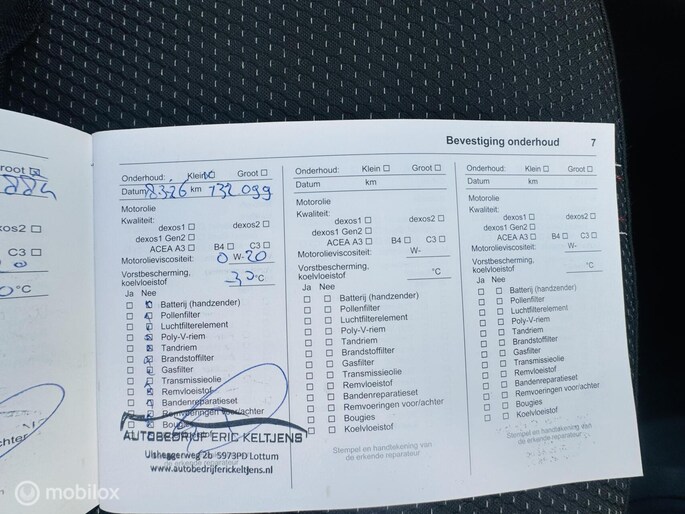 Bevestiging onderhoud 7
root
884
xos2
C3
0
0°C
chter
Onderhoud: Klein Groot
Datum 18-3-26 km 132 099
Motorolie
Kwaliteit:
dexos1 dexos2
dexos1 Gen2
ACEA A3 B4 C3
Motorolieviscositeit: 0 W-20
Vorstbescherming,
koelvloeistof -30 °C
Ja Nee
Batterij (handzender)
Pollenfilter
Luchtfilterelement
Poly-V-riem
Tandriem
Brandstoffilter
Gasfilter
Transmissieolie
Remvloeistof
Bandenreparatieset
Remvoeringen voor/achter
Bougies
AUTOBEDRIJF ERIC KELTJENS
5973PD Lottum
www.autobedrijferickeltjens.nl
de erkende reparateur
Onderhoud: Klein Groot
Datum km
Motorolie
Kwaliteit:
dexos1 dexos2
dexos1 Gen2
ACEA A3 B4 C3
Motorolieviscositeit: W-
Vorstbescherming,
koelvloeistof °C
Ja Nee
Batterij (handzender)
Pollenfilter
Luchtfilterelement
Poly-V-riem
Tandriem
Brandstoffilter
Gasfilter
Transmissieolie
Remvloeistof
Bandenreparatieset
Remvoeringen voor/achter
Bougies
Koelvloeistof
Stempel en handtekening van
de erkende reparateur
Onderhoud: Klein Groot
Datum km
Motorolie
Kwaliteit:
dexos1 dexos2
dexos1 Gen2
ACEA A3 B4 C3
Motorolieviscositeit: W-
Vorstbescherming,
koelvloeistof °C
Ja Nee
Batterij (handzender)
Pollenfilter
Luchtfilterelement
Poly-V-riem
Tandriem
Brandstoffilter
Gasfilter
Transmissieolie
Remvloeistof
Bandenreparatieset
Remvoeringen voor/achter
Bougies
Koelvloeistof
Stempel en handtekening van
de erkende reparateur
mobilox